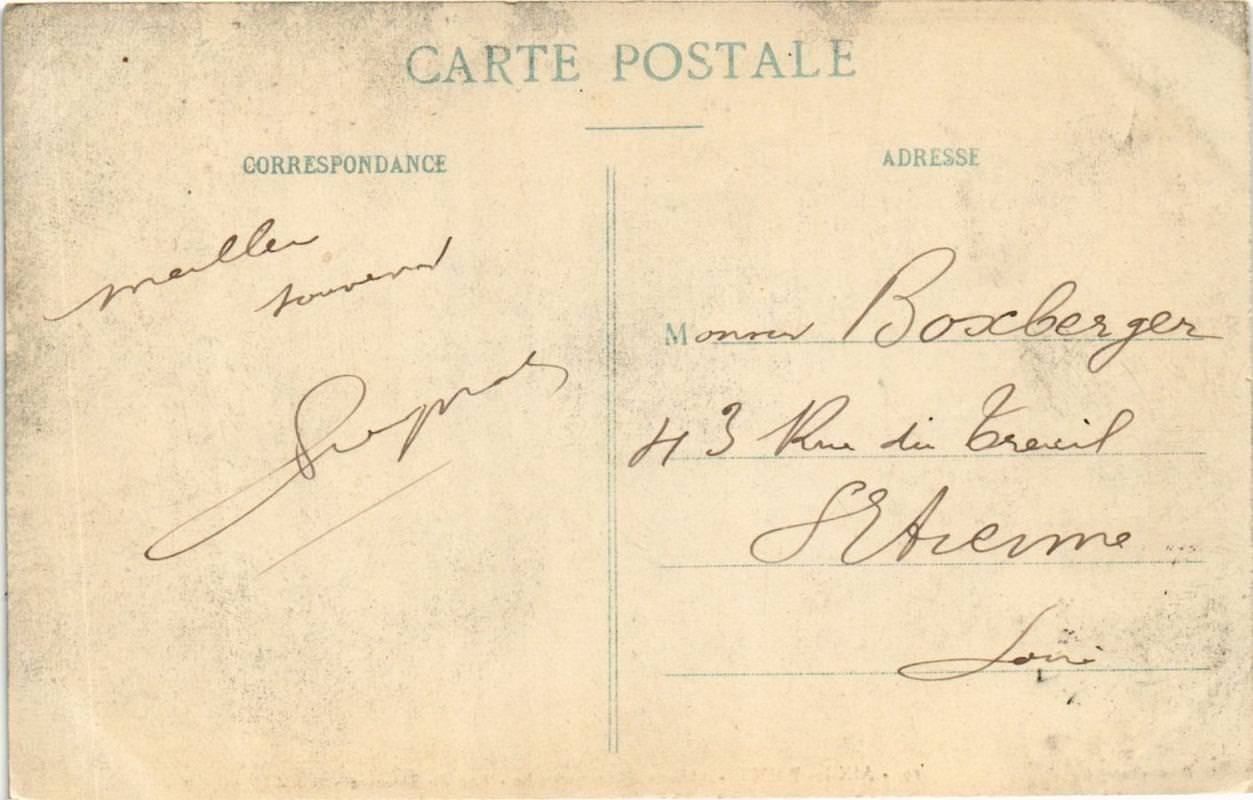 CARTE POSTALE
CORRESPONDANCE
meilleur
souvenir
ADRESSE
Monsieur Boxberger
43 Rue du Treuil
St Etienne
Loire